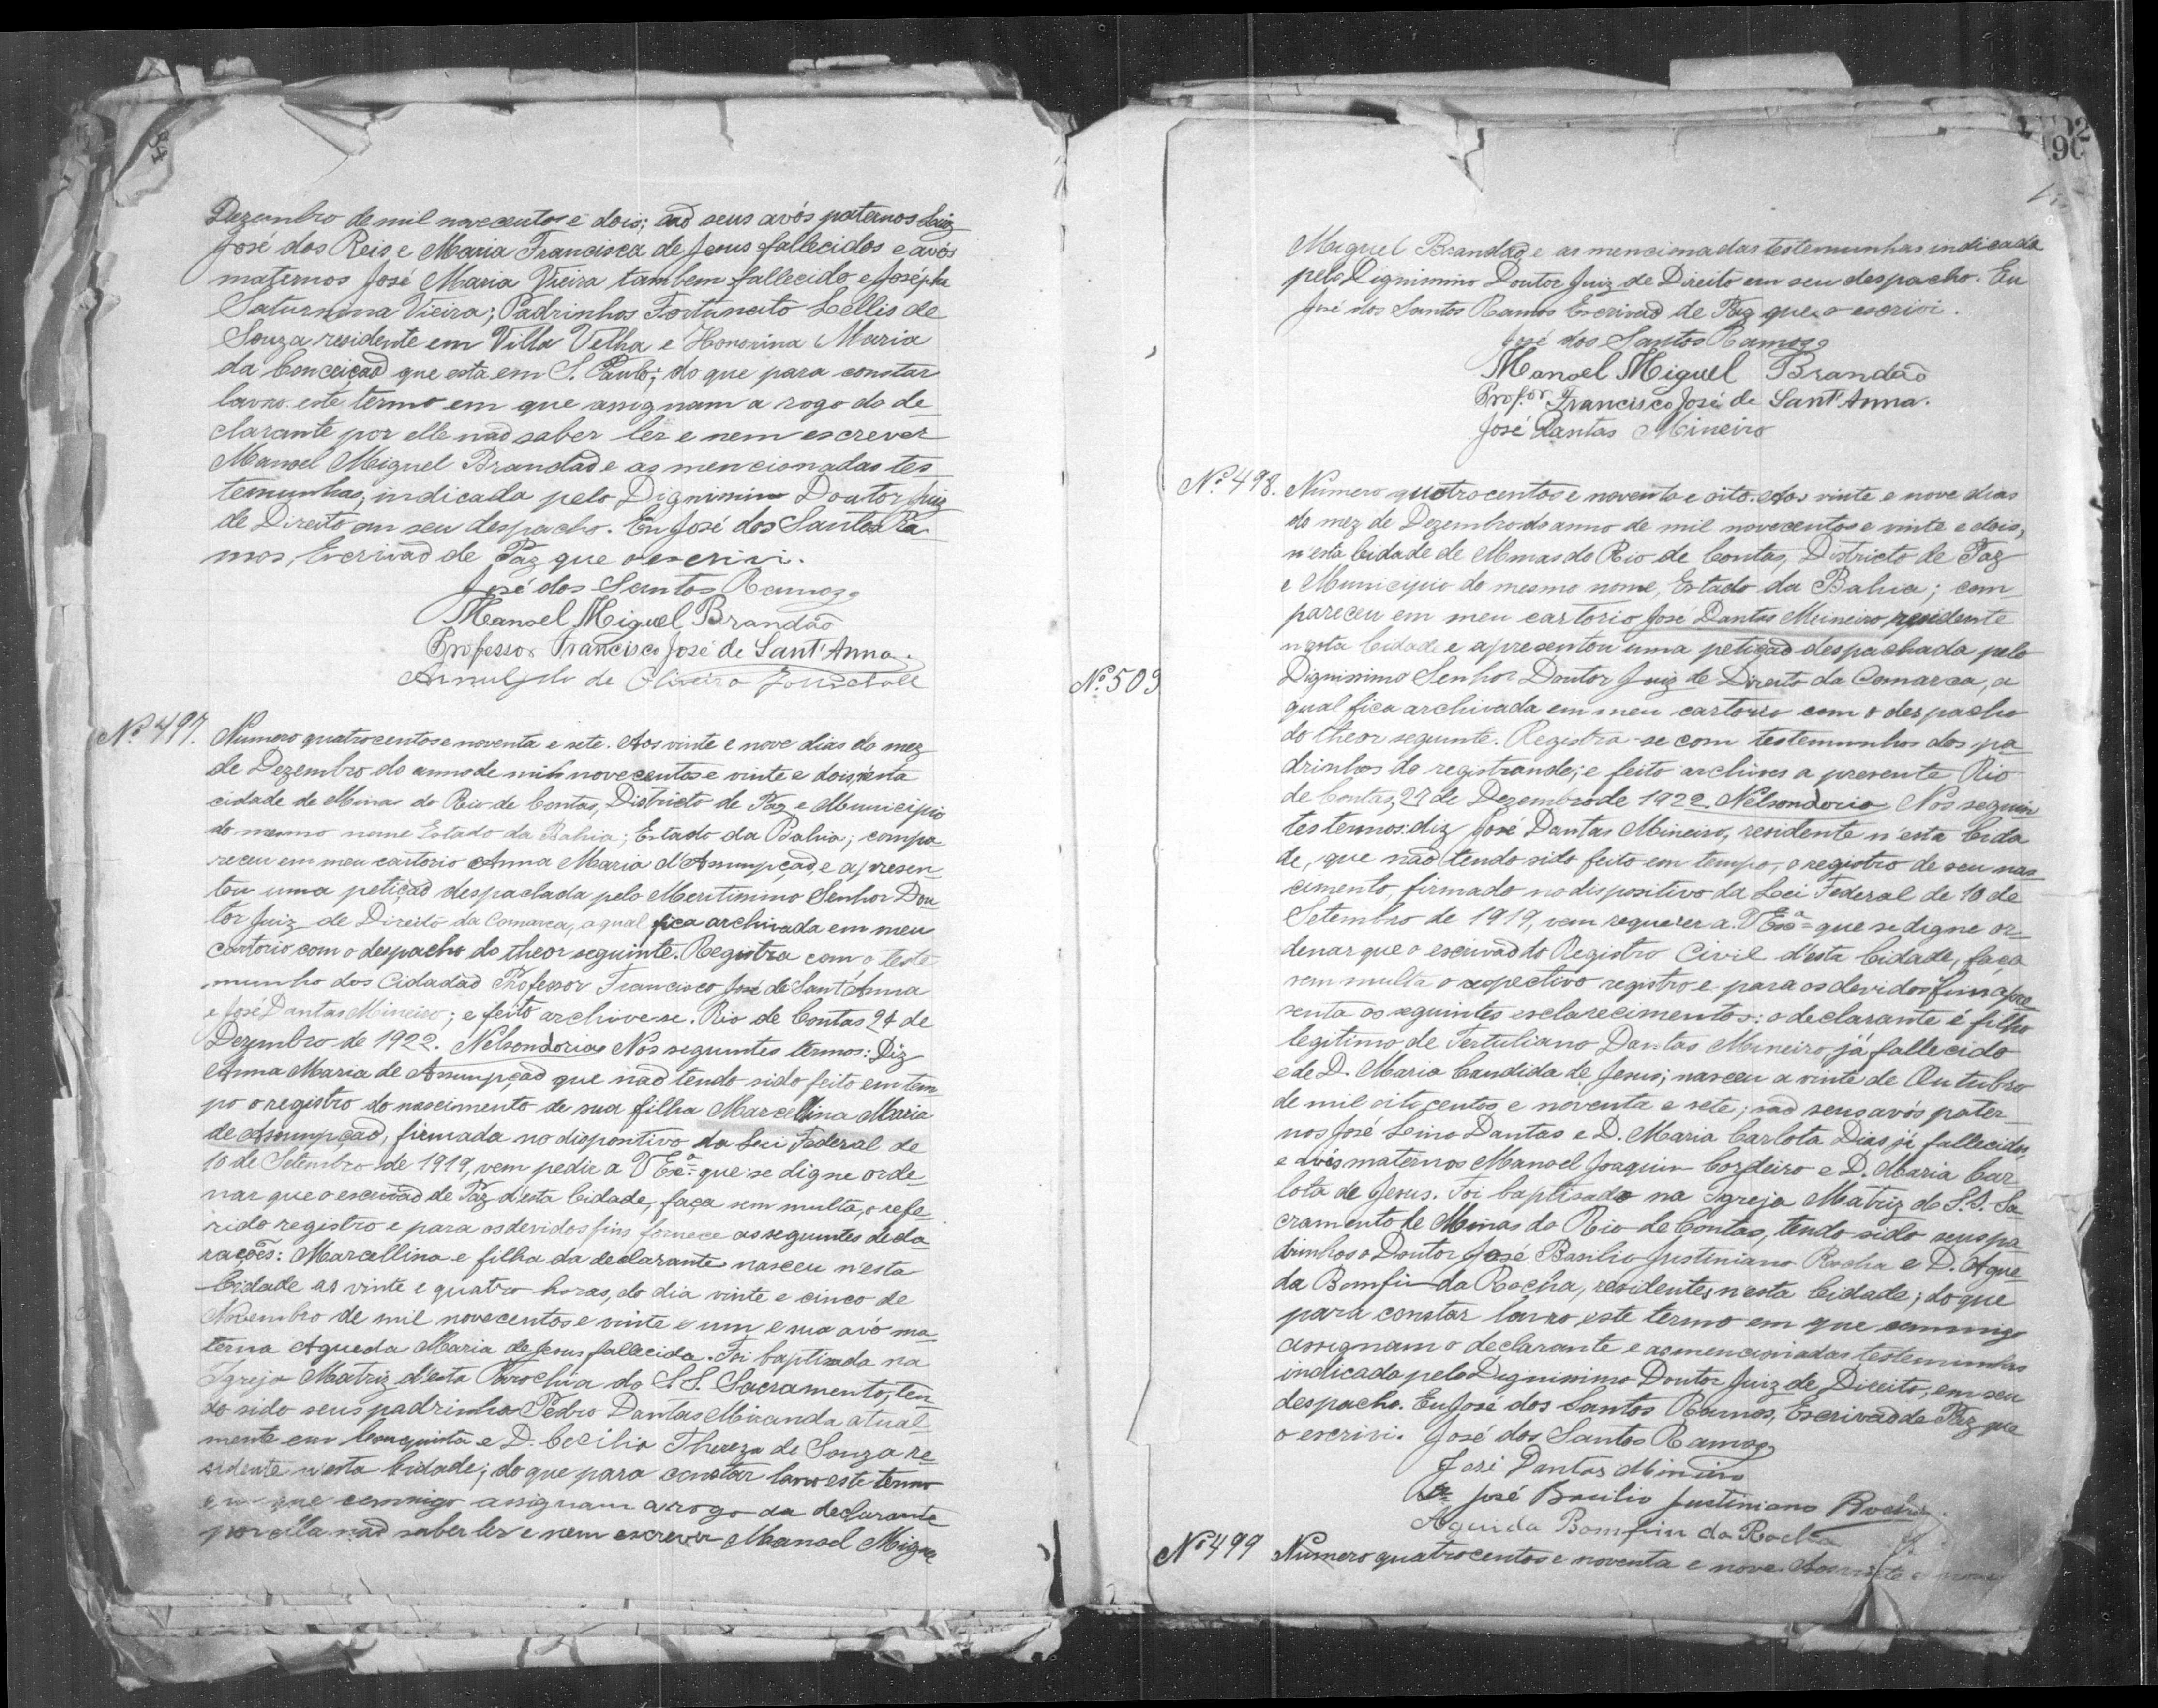 Dezembro de mil novecentos e dois; são seus avós paternos Luiz
José dos Reis e Maria Francisca de Jesus fallecidos e avós
maternos José Maria Vieira tambem fallecido e Josépha
Saturnina Vieira; Padrinhos Fortunato Lellis de
Souza residente em Villa Velha e Honorina Maria
da Conceição que esta em S. Paulo; do que para constar
lavro este termo em que assignam a rogo do de
clarante por elle não saber ler e nem escrever
Manoel Miguel Brandão e as mencionadas tes
temunhas, indicada pelo Dignissimo Doutor Juiz
de Direito em seu despacho. Eu José dos Santos Ra
mos, Escrivão de Paz que o escrivi.
José dos Santos Ramos
Manoel Miguel Brandão
Professor Francisco José de Sant'Anna.
de Oliveira
Nº 497. Numero quatrocentos e noventa e sete. Aos vinte e nove dias do mez
de Dezembro do anno de mil novecentos e vinte e dois, n'esta
cidade de Minas do Rio de Contas, Districto de Paz e Municipio
do mesmo nome Estado da Bahia; Estado da Bahia; compa
receu em meu cartorio Anna Maria d'Assumpção, e apresen
tou uma petição despachada pelo Meritissimo Senhor Dou
tor Juiz de Direito da Comarca, a qual fica archivada em meu
cartorio com o despacho do theor seguinte. Registra com o teste
munho dos Cidadão Professor Francisco José de Sant'Anna
e José Dantas Mineiro; e feito archive-se. Rio de Contas 27 de
Dezembro de 1922. Nelsondoria Nos seguintes termos: Diz
Anna Maria de Assumpção que não tendo sido feito em tem
po o registro do nascimento de sua filha Marcellina Maria
de Assumpção, firmada no dispositivo da Lei Federal de
10 de Setembro de 1919, vem pedir a V Exª que se digne orde
nar que o escrivão de Paz d'esta Cidade, faça sem multa, o refe
rido registro e para os devidos fins fornece as seguintes decla
rações: Marcellina e filha da declarante nasceu n'esta
Cidade as vinte e quatro horas, do dia vinte e cinco de
Novembro de mil novecentos e vinte e um e sua avó ma
terna Agueda Maria de Jesus fallecida. Foi baptisada na
Igreja Matriz d'esta Parochia do S.S. Sacramento, ten
do sido seus padrinhos Pedro Dantas Miranda atual
mente em Conquista e D. Cecilia Thereza de Souza re
sidente n'esta Cidade; do que para constar lavro este termo
em que commigo assignam a rogo da declarante
por ella não saber ler e nem escrever Manoel Migue
Nº 503
902
90
Miguel Brandão e as mencionadas testemunhas indicada
pelo Dignissimo Doutor Juiz de Direito em seu despacho. Eu
José dos Santos Ramos Escrivão de Paz que o escrivi.
José dos Santos Ramos
Manoel Miguel Brandão
Prof.or Francisco José de Sant'Anna.
José Dantas Mineiro
Nº 498. Numero quatrocentos e noventa e oito. Aos vinte e nove dias
do mez de Dezembro do anno de mil novecentos e vinte e dois,
n'esta Cidade de Minas do Rio de Contas, Districto de Paz
e Municipio do mesmo nome, Estado da Bahia; com
pareceu em meu cartorio José Dantas Mineiro, residente
n'esta Cidade e apresentou uma petição despachada pelo
Dignissimo Senhor Doutor Juiz de Direito da Comarca, a
qual fica archivada em meu cartorio com o despacho
do theor seguinte. Registra-se com testemunhos dos pa
drinhos do registrando; e feito archives a presente. Rio
de Contas, 27 de Dezembro de 1922. Nelsondoria Nos seguin
tes termos: diz José Dantas Mineiro, residente n'esta Cida
de, que não tendo sido feito em tempo, o registro de seu nas
cimento, firmado no dispositivo da Lei Federal de 10 de
Setembro de 1919, vem requerer a. V Exª que se digne or
denar que o escrivão do Registro Civil d'esta Cidade, faça
sem multa o respectivo registro e para os devidos fins apre
senta os seguintes esclarecimentos: o declarante é filho
legitimo de Tertuliano Dantas Mineiro já fallecido
e de D. Maria Candida de Jesus; nasceu a vinte de Outubro
de mil oitocentos e noventa e sete; são seus avós pater
nos José Lino Dantas e D. Maria Carlota Dias já fallecidos,
e avós maternos Manoel Joaquim Cordeiro e D. Maria Car
lota de Jesus. Foi baptisado na Igreja Matriz do S.S. Sa
cramento de Minas do Rio de Contas, tendo sido seus pa
drinhos o Doutor José Basilio Justiniano Rocha e D. Ague
da Bomfim da Rocha, residentes n'esta Cidade; do que
para constar lavro este termo em que commigo
assignam o declarante e as mencionadas testemunhas
indicada pelo Dignissimo Doutor Juiz de Direito, em seu
despacho. Eu José dos Santos Ramos, Escrivão de Paz que
o escrivi. José dos Santos Ramos
José Dantas Mineiro
Dr. José Basilio Justiniano Rocha.
Aguida Bomfim da Rocha
Nº 499 Numero quatrocentos e noventa e nove. Aos vinte e nove